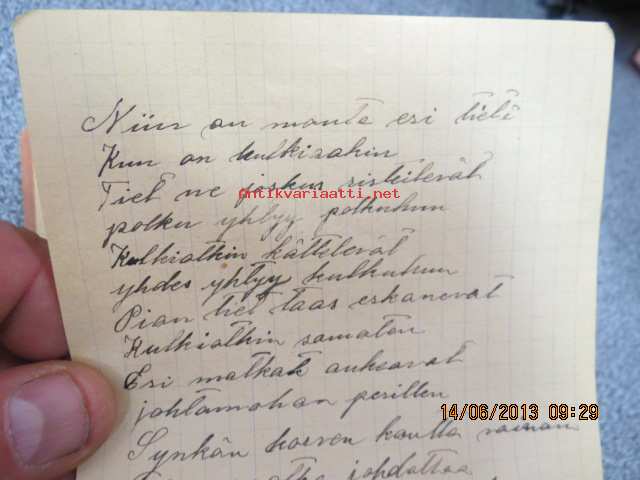 Niin on monta eri tietä
Kun on kulkiaakin
Tiet ne joskus risteilevät
antikvariaatti.net
polku yhtyy polkuhun
Kulkiatkin kättelevät
yhdes yhtyy kulkuhun
Pian tiet taas erkanevat
Kulkiatkin samaten
Eri matkat aukeavat
johtamahan perillen
14/06/2013 09:29
Synkän korven kautta
johdattaa